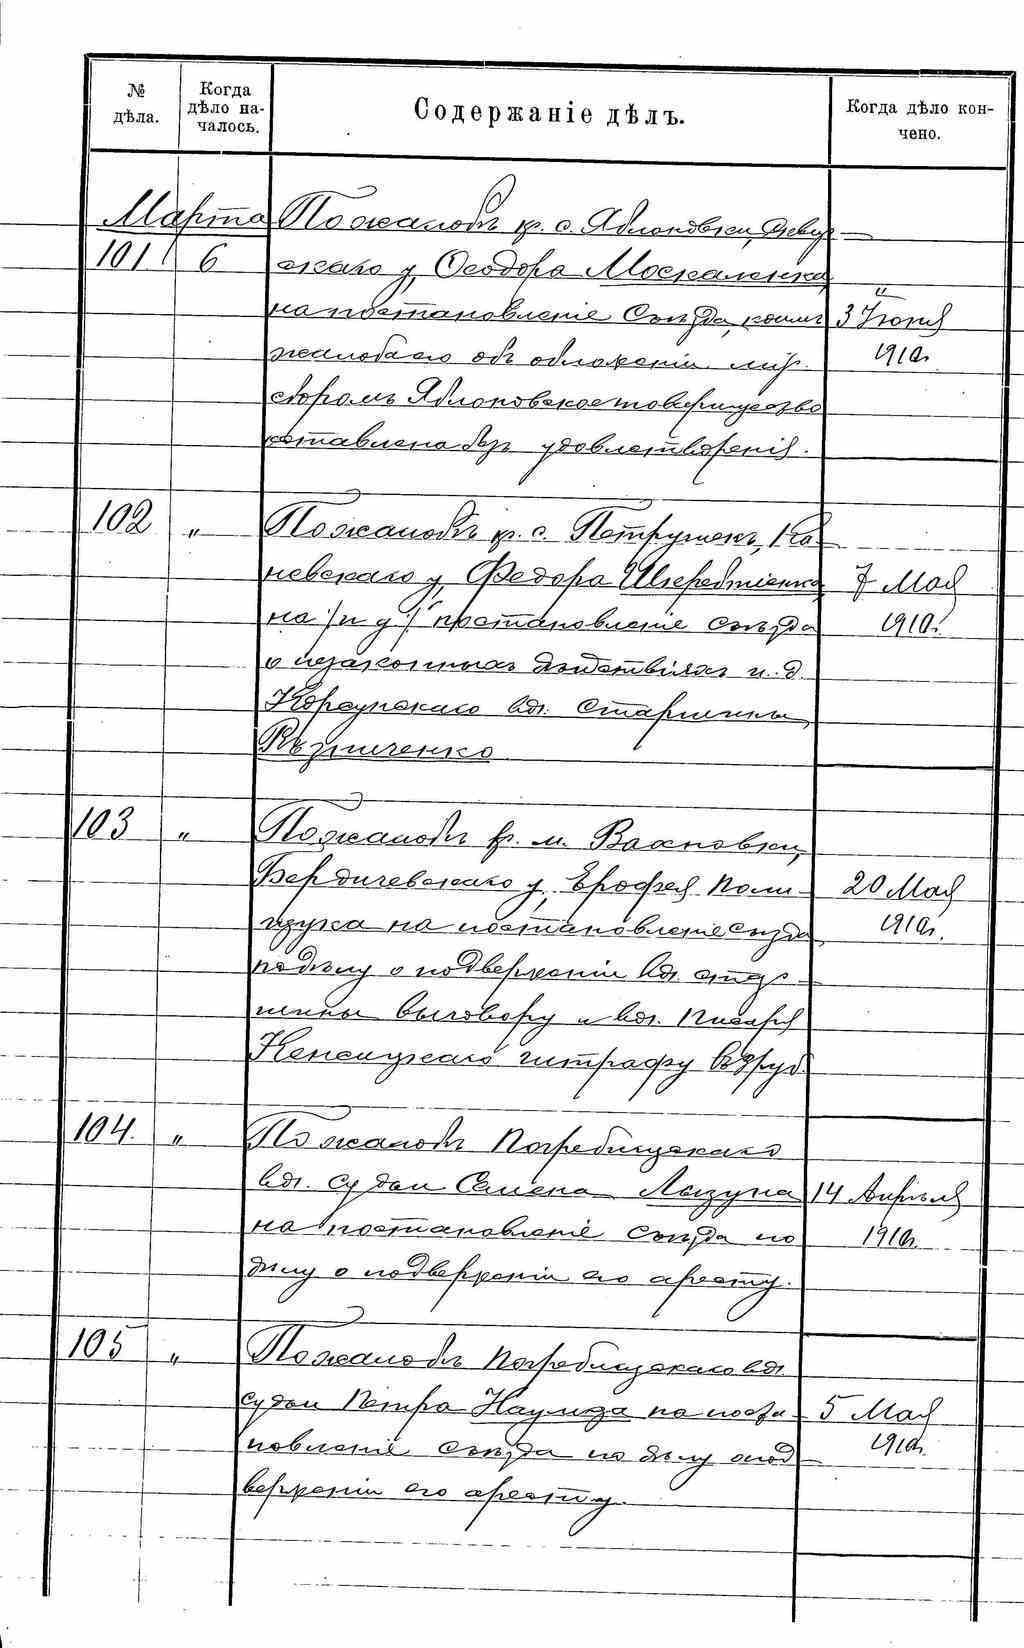 № дѣла.
Когда дѣло на-
чалось.
Содержаніе дѣлъ.
Когда дѣло кон-
чено.
Марта
101 6 По жалобѣ кр. с. Яблоновки,
скаго у, Ѳеодора Москаленка,
на постановленіе Съѣзда, коимъ
жалоба его объ обложеніи мір.
сборомъ Яблоновское товарищество
оставлена безъ удовлетворенія.
3 Іюня
1910г.
102 " По жалобѣ кр. с. Петрушекъ, Ка-
невскаго у, Федора
на /п у/ постановленіе съѣзда
о незаконныхъ дѣйствіяхъ и. д.
Корсунскаго вол. Старшины
7 Мая
1910г.
103 " По жалобѣ кр. м. Вахновки,
Бердичевскаго у, Ерофея Поли-
щука на постановленіе Съѣзда
по дѣлу о подверженіи вол. стар-
шины выговору и вол. Писаря
штрафу въ 3 руб.
20 Мая
1910г.
104. " По жалобѣ Погребищскаго
вол. судьи Семена Лызуна
на постановленіе Съѣзда по
дѣлу о подверженіи его аресту.
14 Апрѣля
1910г.
105 " По жалобѣ Погребищскаго вол.
судьи Петра на поста-
новленіе Съѣзда по дѣлу о под-
верженіи его аресту.
5 Мая
1910г.